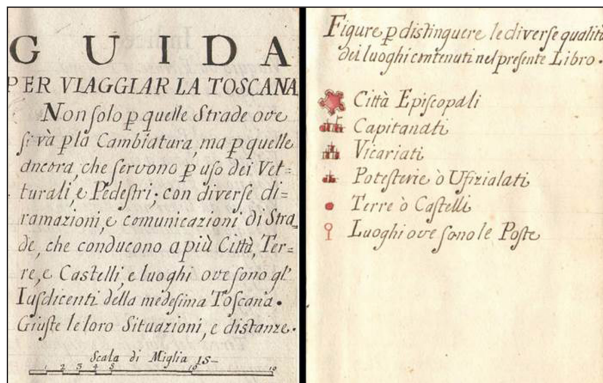 GUIDA
PER VIAGGIAR LA TOSCANA
Non solo p quelle Strade ove
si và p la Cambiatura, ma p quelle
ancora, che servono p uso dei Vet=
turali, e Pedestri; con diverse di=
ramazioni, e comunicazioni di Stra
de, che conducono a più Città, Ter=
re, e Castelli, e luoghi ove sono gl'
Iusdicenti della medesima Toscana.
Giuste le loro Situazioni, e distanze.
Scala di Miglia 15
1 2 3 4 5 10
Figure p distinguere le diverse qualità
dei luoghi contenuti nel presente Libro.
Città Episcopali
Capitanati
Vicariati
Potesterie ò Ufizialati
Terre ò Castelli
Luoghi ove sono le Poste